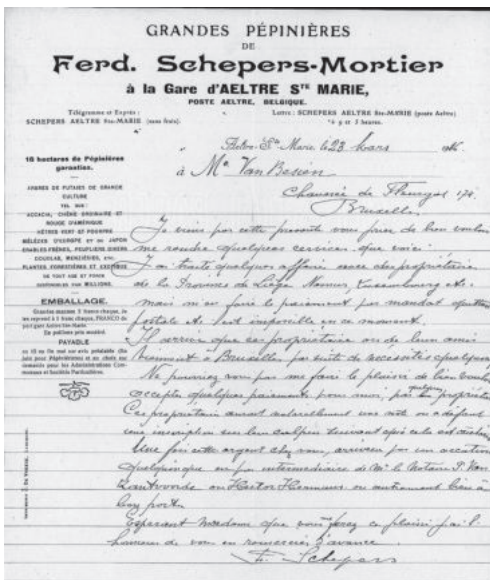 GRANDES PÉPINIÈRES
DE
Ferd. Schepers-Mortier
à la Gare d'AELTRE STE MARIE,
POSTE AELTRE, BELGIQUE.
Télégramme et Exprès :
SCHEPERS AELTRE Ste-MARIE (sans frais).
Lettre : SCHEPERS AELTRE Ste-MARIE (poste Aeltre)
Aeltre-Ste Marie, le 23 Mars
à Me Van Besien
Chaussée de
Bruxelles
18 hectares de Pépinières
garanties.
ARBRES DE FUTAIES DE GRANDE
CULTURE
TEL QUE :
ACCACIA, CHÊNE ORDINAIRE ET
ROUGE D'AMÉRIQUE
HÊTRES VERT ET POURPRE
MÉLÈZES D'EUROPE ET DU JAPON
ERABLES FRÊNES, PEUPLIERS DIVERS
DOUGLAS, MENZIÉSIES, ETC.
PLANTES FORESTIÈRES ET
DE TOUT AGE ET FORCE
DISPONIBLES PAR MILLIONS.
EMBALLAGE.
PAYABLE
Je viens par cette présente vous prier de bien vouloir
me rendre quelques services que voici
J'ai traité quelques affaires avec des propriétaires
de la Province de Liège Namur Luxembourg etc.
mais m'en faire le paiement par mandat
postale etc. est impossible en ce moment.
Il arrive que ces propriétaire ou de leur amis
viennent à Bruxelles par suite de nécessités quelconques
Ne pourriez vous pas me faire le plaisir de bien vouloir
accepter quelques paiements pour moi, par quelques propriétaires
Ces propriétaire auront naturellement une note ou à défaut
une inscription sur leur
Une fois cette argent chez vous, arrivera par une occation
quelconque ou par intermédiaire de Mr le Notaire P. Van
ou Hector Hermans ou autrement bien à
bon port.
Espérant Madame que vous ferez ce plaisir j'ai l'
honneur de vous en remercier d'avance
F. Schepers